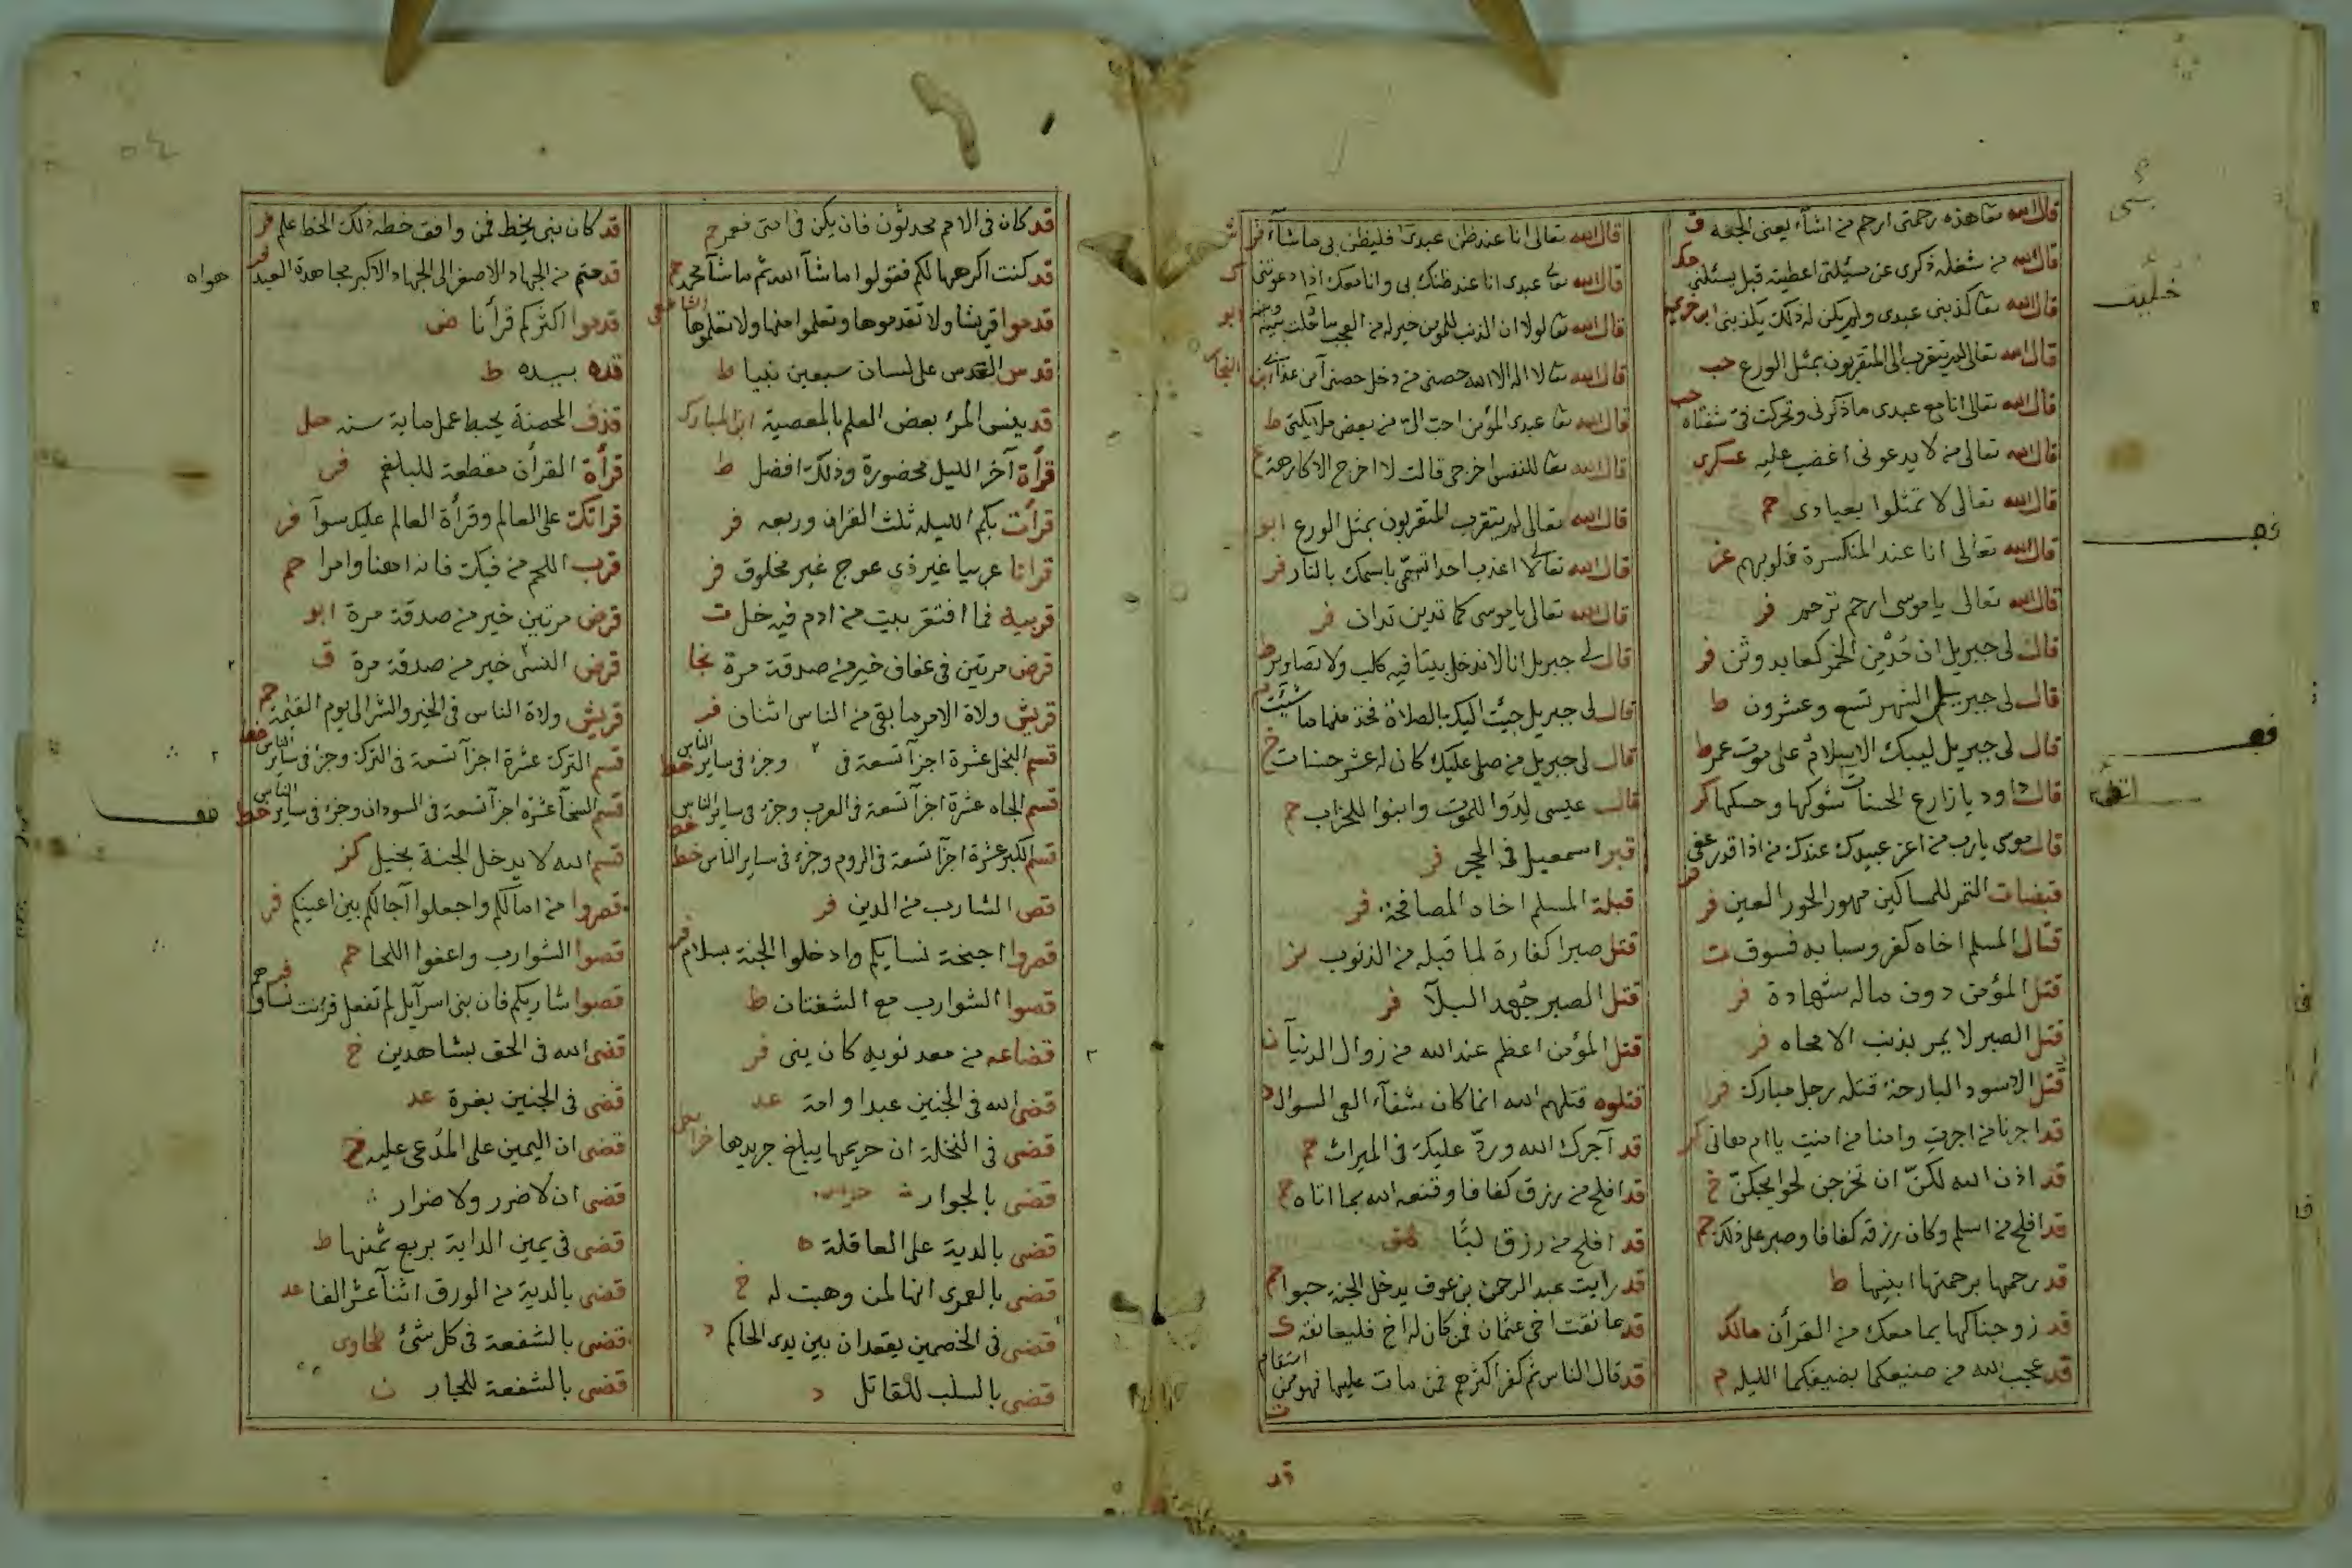 قال الله تعا هذه رحمتى ارحم من اشاء يعنى الجنة ق
قال الله من شغله ذكرى عن مسئلتى اعطيته قبل يسئلنى حك
قال الله تعا كذبنى عبدى ولم يكن له ذلك يكذبنى ابن خزيمة
قال الله تعالى لم يتقرب الى المتقربون بمثل الورع حب
قال الله تعالى انا مع عبدى ما ذكرنى وتحركت فى شفتاه حب
قال الله تعالى من لا يدعونى اغضب عليه عسكرى
قال الله تعالى لا تمثلوا بعبادى حم
قال الله تعالى انا عند المنكسرة قلوبهم غز
قال الله تعالى يا موسى ارحم ترحم فر
قال لى جبريل ان مُدْمِن الخمر كعابد وثن فر
قال لى جبريل الشهر تسع وعشرون ط
قال لى جبريل ليبك الاسلام على موت عمر ط
قال داود يا زارع السيآت شوكها وحسكها كر
قال موسى يا رب من اعز عبيدك عندك من اذا قدر عفى
قبضات التمر للمساكين مهور الحور العين فر
قتال المسلم اخاه كفر وسبابه فسوق ت
قتل المؤمن دون ماله شهادة فر
قتل الصبر لا يمر بذنب الا محاه فر
قُتل الاسود البارحة قتله رجل مبارك فر
قد اجرنا من اجرتِ وامنا من امنتِ يا ام هانى
قد اذن الله لكنّ ان تخرجن لحوايجكنّ خ
قد افلح من اسلم وكان رزقه كفافا وصبر على ذلك حم
قد رحمها برحمتها ابنيها ط
قد زوجناكها بما معك من القرأن مالك
قد عجب الله من صنيعكما بضيفكما الليله م
قال الله تعالى انا عند ظن عبدى فليظن بى ما شآء فر
قال الله تعا عبدى انا عند ظنك بى وانا معك اذا دعوتنى ك
قال الله تعا لولا ان الذنب للمؤمن خير له من العجب ما خليت بينه وبينه ابو
قال الله تعا لا اله الا الله حصنى من دخل حصنى آمن عذابى ابن النجار
قال الله تعا عبدى المؤمن احب الى من بعض ملايكتى ط
قال الله تعا للنفس اخرجى قالت لا اخرج الا كارهة خ
قال الله تعالى لم يتقرب المتقربون بمثل الورع ابو
قال الله تعالى لا اعذب احدا تسمّى باسمك بالنار فر
قال الله تعالى يا موسى كما تدين تدان فر
قال لى جبريل انا لا ندخل بيتا فيه كلب ولا تصاوير ط
قال لى جبريل حببت اليك بالصلاة فخذ منها ما شئت حم
قال لى جبريل من صلى عليك كان له عشر حسنات خ
قال عيسى لِدُوا للموت وابنوا للخراب حم
قبر اسمعيل فى الحجر فر
قبلة المسلم اخاه المصافحة فر
قتل صبرا كفارة لما قبله من الذنوب بز
قتل الصبر جُهد البلآ فر
قتل المؤمن اعظم عند الله من زوال الدنيآ ن
قتلوه قتلهم الله انما كان شفآء العى السوال د
قد آجرك الله وردّ عليك فى الميراث حم
قد افلح من رزق كفافا وقنعه الله بما اتاه م
قد افلح من رزق لبًّا هق
قد رايت عبد الرحمن بن عوف يدخل الجنة حبوا حم
قد عانقت اخى عثمان فمن كان له اخ فليعانقه ك
قد قال الناس ثم كفر اكثرهم فمن مات عليها فهو ممن استقام ت
قد
قد كان فى الامم محدثون فان يكن فى امتى فعمر حم
قد كنت اكرهها لكم فقولوا ما شآ الله ثم ما شآ محمد
قدموا قريشا ولا تقدموها وتعلموا منها ولا تعلموها الشافعى
قدس القدس على لسان سبعين نبيا ط
قد ينسى المرئ بعض العلم بالمعصية ابن المبارك
قرأة آخر الليل محضورة وذلك افضل ط
قرأت بكم الليله ثلث القران وربعه فر
قرانا عربيا غير ذى عوج غير مخلوق فر
قربيه فما افتقر بيت من ادم فيه خل ت
قرض مرتين فى عفاف خير من صدقة مرة نجا
قريش ولاة الامر ما بقى من الناس اثنان فر
قسم البخل عشرة اجزآ تسعة فى وجزء فى ساير الناس خط
قسم الجاه عشرة اجزآ تسعة فى العرب وجزء فى ساير الناس خط
قسم الكبر عشرة اجزآ تسعة فى الروم وجزء فى ساير الناس خط
قص الشارب من الدين فر
قصروا اجنحة نسايكم وادخلوا الجنة بسلام فر
قصوا الشوارب مع الشفتان ط
قضاعه من معد نوبه كان ينى فر
قضى الله فى الجنين عبدا وامة عد
قضى فى النخلة ان حريمها يبلغ جريدها
قضى بالجوار
قضى بالدية على العاقلة ه
قضى بالعمرى انها لمن وهبت له خ
قضى فى الخصمين يقعدان بين يدى الحاكم د
قضى بالسلب للقاتل د
قد كان نبى يخط فمن وافق خطه ذلك الخط علم فر
قدمتم من الجهاد الاصغر الى الجهاد الاكبر مجاهدة العبد هواه
قدموا اكثركم قرأنا ض
قده بيده ط
قذف المحصنة يحبط عمل ماية سنه حل
قرأة القرأن مقطعة للبلغم فى
قراتك على العالم وقرأة العالم عليك سوآ فر
قرب اللحم من فيك فانه اهنا وامرا حم
قرض مرتين خير من صدقة مرة ابو
قرض الشئ خير من صدقة مرة ق
قريش ولاة الناس فى الخير والشر الى يوم القيمة حم
قسم الترك عشرة اجزآ تسعة فى الترك وجزء فى ساير الناس خط
قسم السخآ عشرة اجزآ تسعة فى السودان وجزء فى ساير الناس خط
قسم الله لا يدخل الجنة بخيل كر
قصروا من امالكم واجعلوا آجالكم بين اعينكم فر
قصوا الشوارب واعفوا اللحا حم
قصوا شاربكم فان بنى اسرآيل لم تفعل فزنت نساوها
قضى الله فى الحق بشاهدين خ
قضى فى الجنين بغرة عد
قضى ان اليمين على المُدعى عليه خ
قضى ان لا ضرر ولا ضرار
قضى فى يمين الدابة بربع ثمنها ط
قضى بالدية من الورق اثنآ عشر الفا عد
قضى بالشفعة فى كل شئ طحاوى
قضى بالشفعة للجار ن